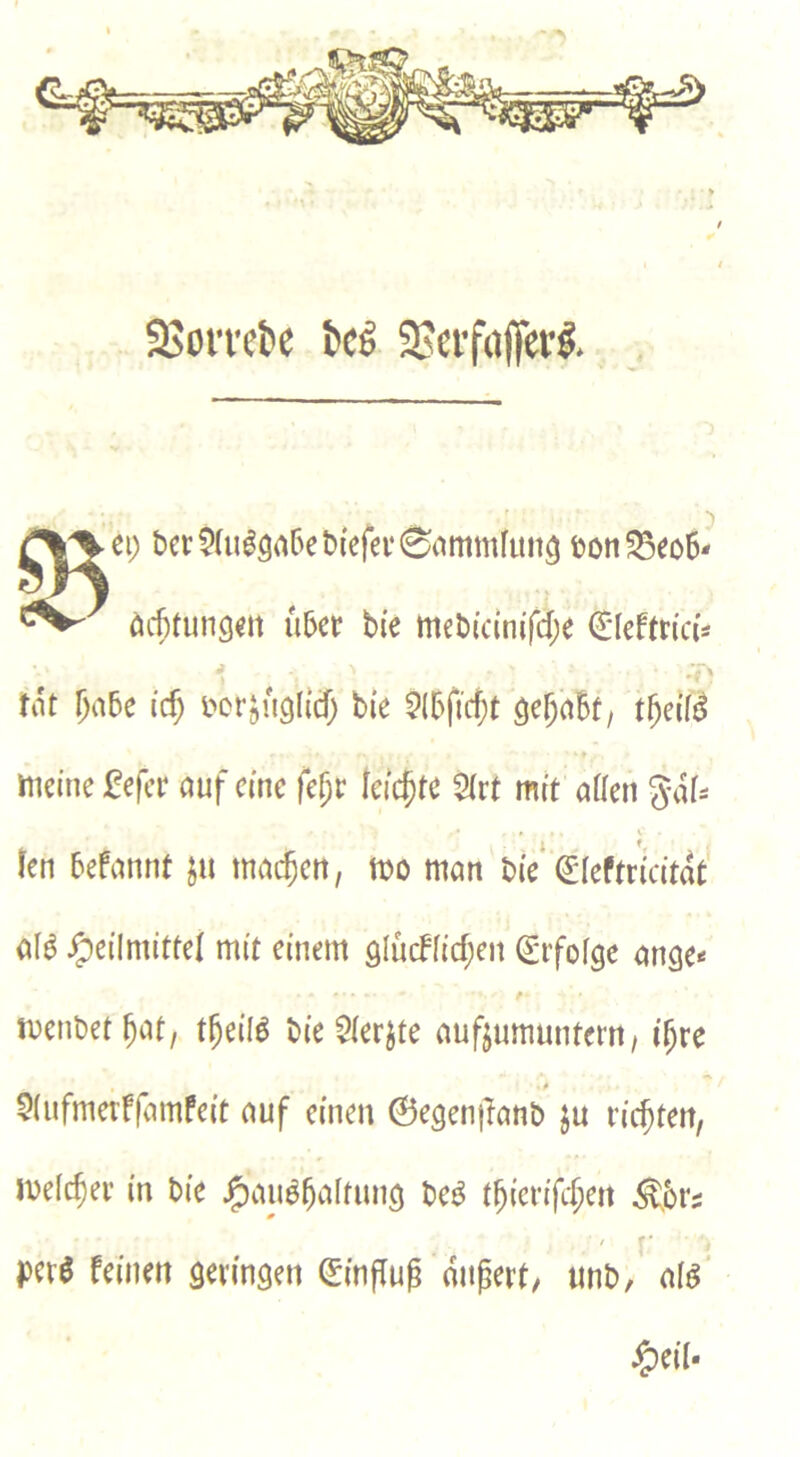 Vorrede des Verfassers.
Bey der Ausgabe dieser Sammlung von Beob-
achtungen über die medicinische Elektrici-
tät habe ich vorzüglich die Absicht gehabt, theils
meine Leser auf eine sehr leichte Art mit allen Fäl-
len bekannt zu machen, wo man die Elektricität
als Heilmittel mit einem glücklichen Erfolge ange-
wendet hat, theils die Aerzte aufzumuntern, ihre
Aufmerksamkeit auf einen Gegenstand zu richten,
welcher in die Haushaltung des thierischen Kör-
pers keinen geringen Einfluß äußert, und, als
Heil-